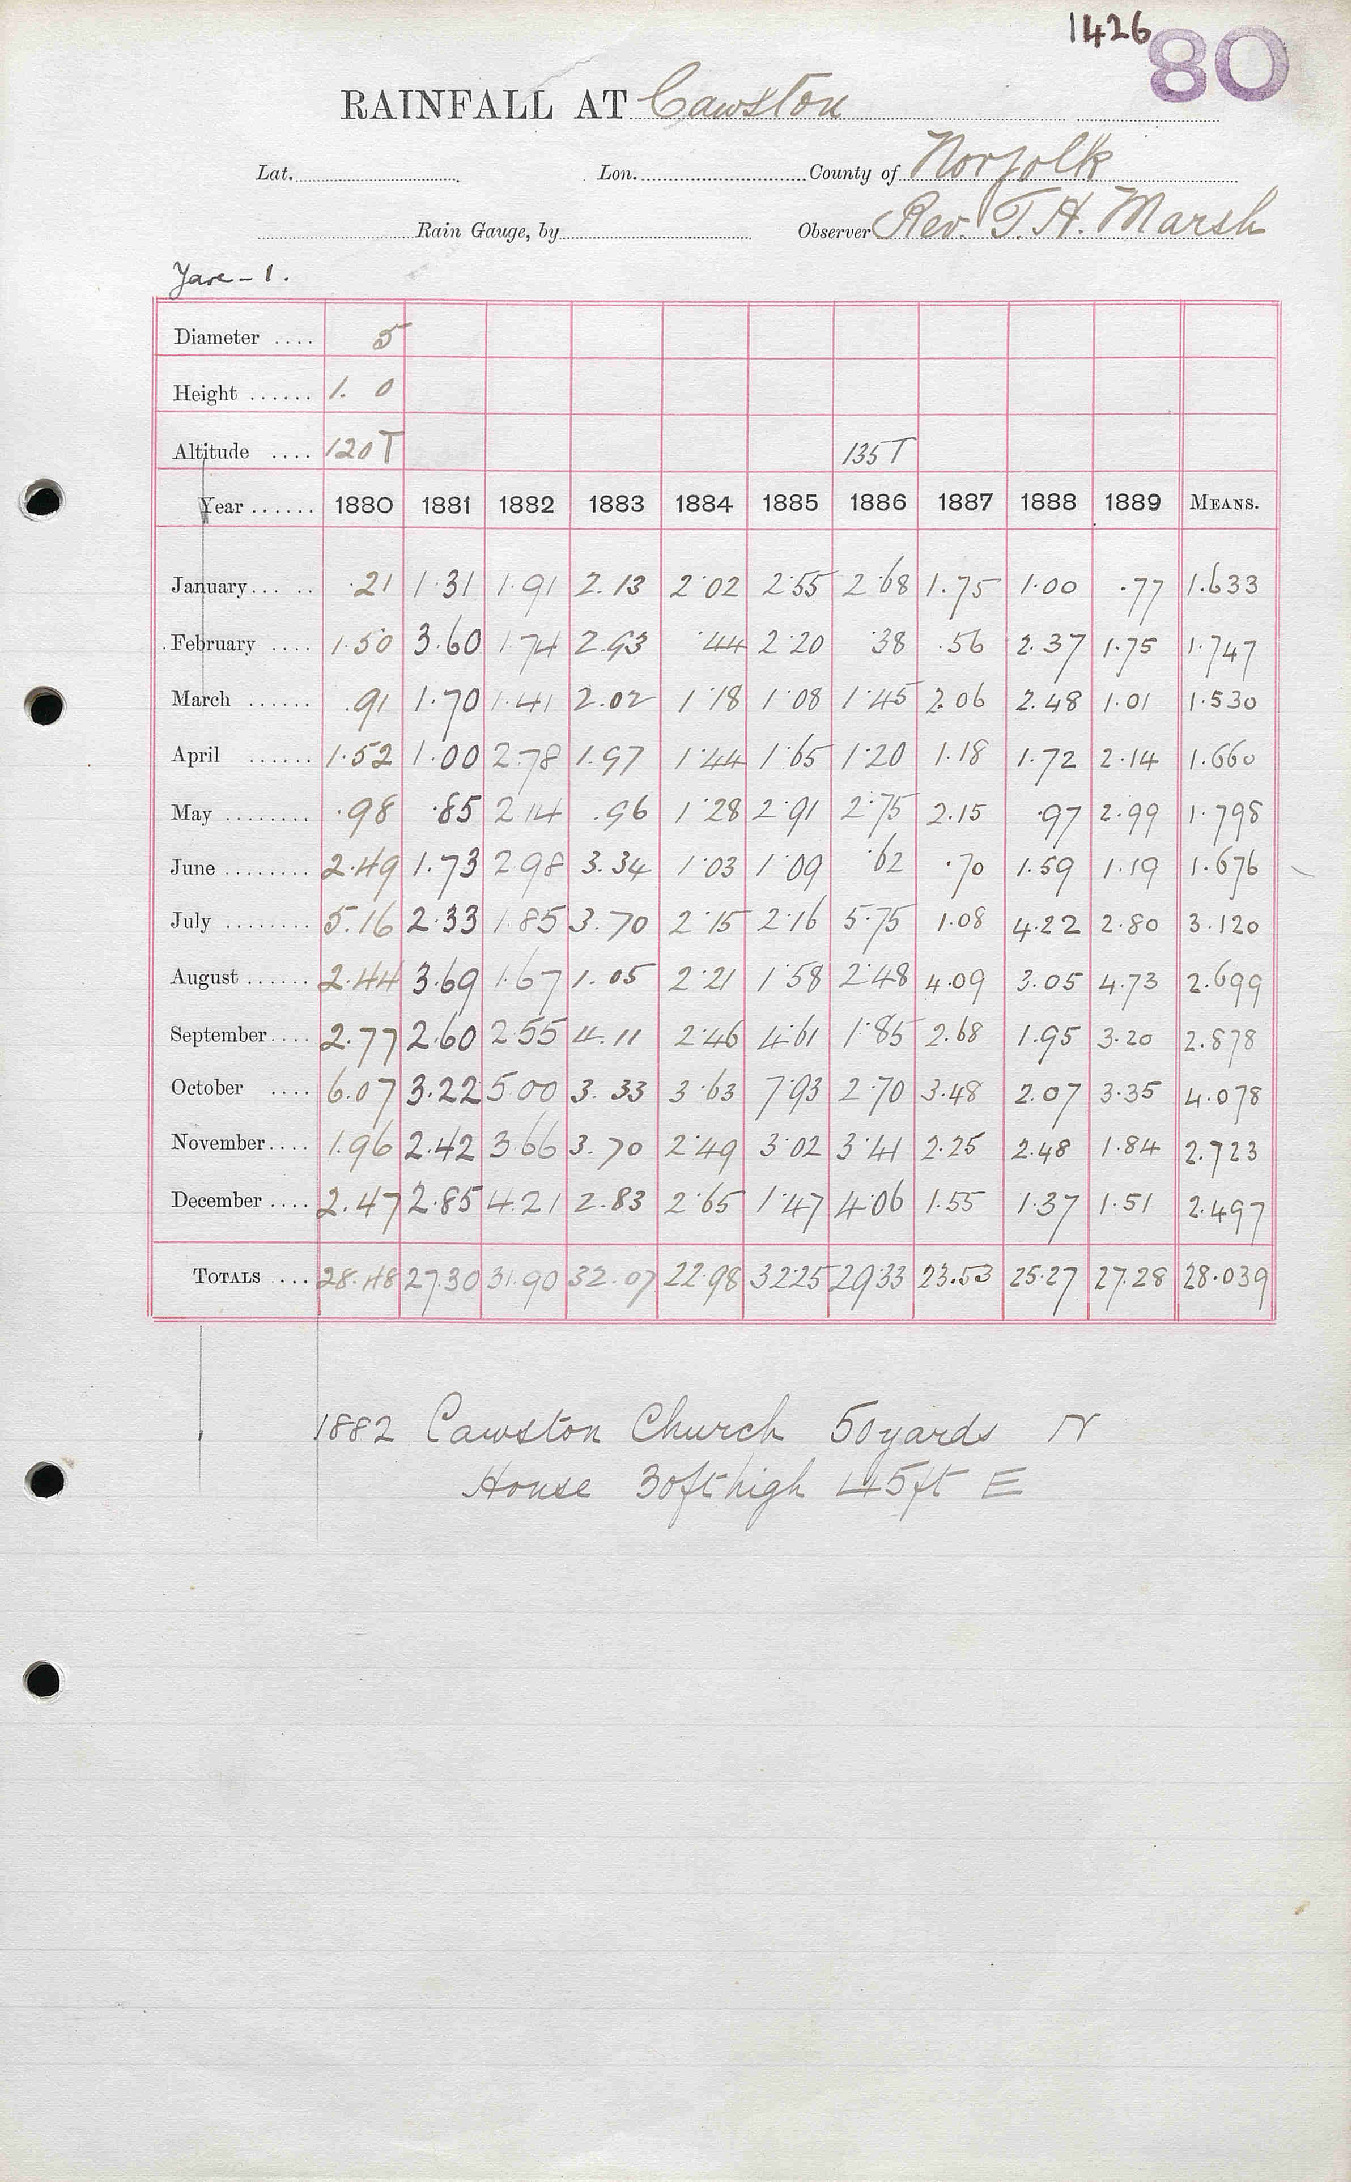 1426 80
RAINFALL AT Cawston
Lat. Lon. County of Norfolk
Rain Gauge, by Observer Rev. T. H. Marsh
Yare - 1.
Diameter .... 5
Height ...... 1. 0
Altitude .... 120 T 135 T
Year ...... 1880 1881 1882 1883 1884 1885 1886 1887 1888 1889 MEANS.
January ..... .21 1.31 1.91 2.13 2.02 2.55 2.68 1.75 1.00 .77 1.633
February .... 1.50 3.60 1.74 2.93 .44 2.20 .38 .56 2.37 1.75 1.747
March ...... .91 1.70 1.41 2.02 1.18 1.08 1.45 2.06 2.48 1.01 1.530
April ...... 1.52 1.00 2.78 1.97 1.44 1.65 1.20 1.18 1.72 2.14 1.660
May ........ .98 .85 2.14 .96 1.28 2.91 2.75 2.15 .97 2.99 1.798
June ........ 2.49 1.73 2.98 3.34 1.03 1.09 .62 .70 1.59 1.19 1.676
July ........ 5.16 2.33 1.85 3.70 2.15 2.16 5.75 1.08 4.22 2.80 3.120
August ...... 2.44 3.69 1.67 1.05 2.21 1.58 2.48 4.09 3.05 4.73 2.699
September .... 2.77 2.60 2.55 4.11 2.46 4.61 1.85 2.68 1.95 3.20 2.878
October .... 6.07 3.22 5.00 3.33 3.63 7.93 2.70 3.48 2.07 3.35 4.078
November .... 1.96 2.42 3.66 3.70 2.49 3.02 3.41 2.25 2.48 1.84 2.723
December .... 2.47 2.85 4.21 2.83 2.65 1.47 4.06 1.55 1.37 1.51 2.497
TOTALS .... 28.48 27.30 31.90 32.07 22.98 32.25 29.33 23.53 25.27 27.28 28.039
1882 Cawston Church 50 yards N
House 30ft high 45ft E